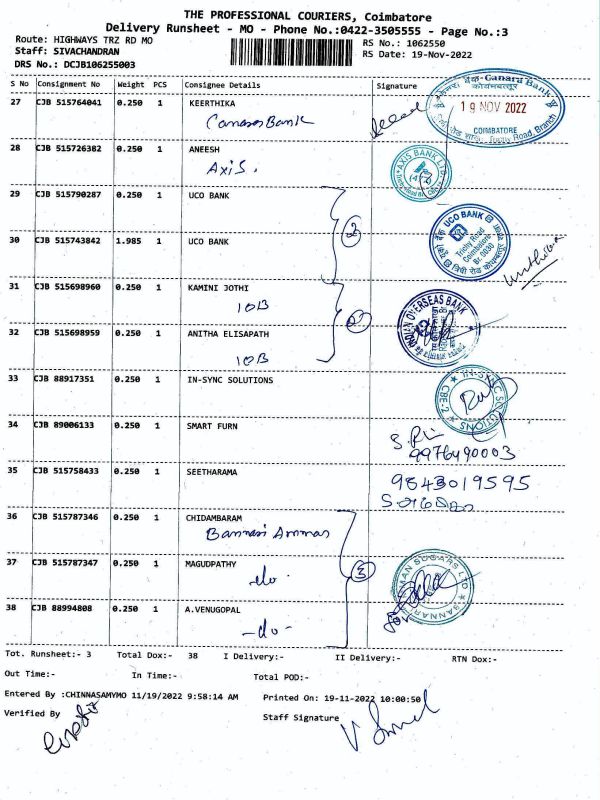 THE PROFESSIONAL COURIERS, Coimbatore
Delivery Runsheet - MO - Phone No.:0422-3505555 - Page No.:3
Route: HIGHWAYS TRZ RD MO RS No.: 1062550
Staff: SIVACHANDRAN RS Date: 19-Nov-2022
DRS No.: DCJB106255003
S No Consignment No Weight PCS Consignee Details Signature
27 CJB 515764041 0.250 1 KEERTHIKA
Canara Bank
19 NOV 2022
COIMBATORE
28 CJB 515726382 0.250 1 ANEESH
Axis.
AXIS BANK LTD
29 CJB 515790287 0.250 1 UCO BANK
2
UCO BANK
Trichy Road
Coimbatore
Br. 0030
30 CJB 515743842 1.985 1 UCO BANK
31 CJB 515698960 0.250 1 KAMINI JOTHI
IOB
INDIAN OVERSEAS BANK
32 CJB 515698959 0.250 1 ANITHA ELISAPATH
IOB
33 CJB 88917351 0.250 1 IN-SYNC SOLUTIONS
IN-SYNC SOLUTIONS
CBE-2
34 CJB 89006133 0.250 1 SMART FURN
9976490003
35 CJB 515758433 0.250 1 SEETHARAMA
9843019595
36 CJB 515787346 0.250 1 CHIDAMBARAM
Bannari Amman
37 CJB 515787347 0.250 1 MAGUDPATHY
-do-
3
38 CJB 88994808 0.250 1 A.VENUGOPAL
-do-
Tot. Runsheet:- 3 Total Dox:- 38 I Delivery:- II Delivery:- RTN Dox:-
Out Time:- In Time:- Total POD:-
Entered By :CHINNASAMYMO 11/19/2022 9:58:14 AM Printed On: 19-11-2022 10:00:50
Verified By Staff Signature